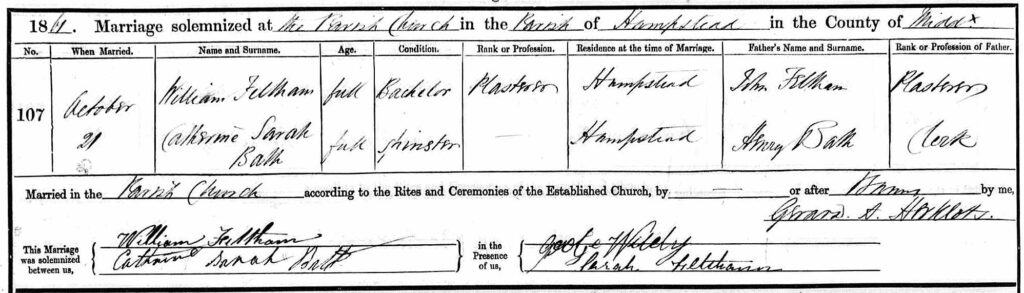 1861. Marriage solemnized at the Parish Church in the Parish of Hampstead in the County of Middx
No. When Married. Name and Surname. Age. Condition. Rank or Profession. Residence at the time of Marriage. Father's Name and Surname. Rank or Profession of Father.
107 October 21 William Feltham full Bachelor Plasterer Hampstead John Feltham Plasterer
Catherine Sarah Bath full Spinster — Hampstead Henry Bath Clerk
Married in the Parish Church according to the Rites and Ceremonies of the Established Church, by — or after Banns by me,
Gerard A. Herklots.
This Marriage was solemnized between us, William Feltham
Cathrine Sarah Bath
in the Presence of us, George
Sarah Feltham